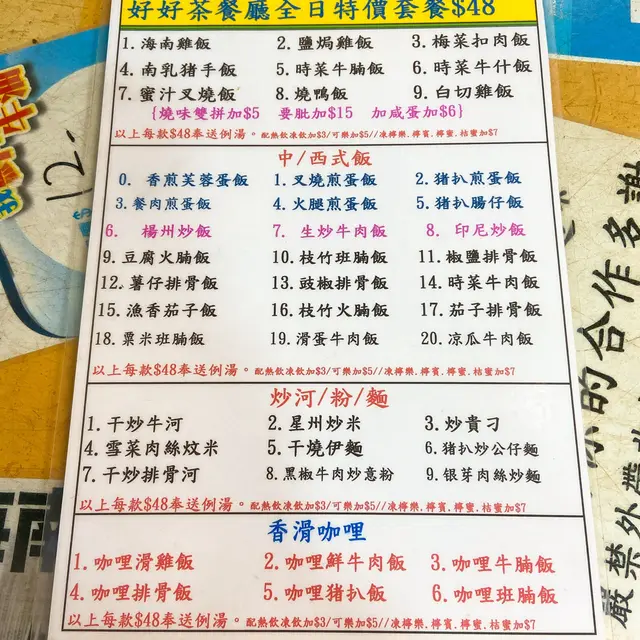 好好茶餐廳全日特價套餐$48
1. 海南雞飯 2. 鹽焗雞飯 3. 梅菜扣肉飯
4. 南乳猪手飯 5. 時菜牛腩飯 6. 時菜牛什飯
7. 蜜汁叉燒飯 8. 燒鴨飯 9. 白切雞飯
{燒味雙拼加$5 要肶加$15 加咸蛋加$6}
以上每款$48奉送例湯。配熱飲凍飲加$3/可樂加$5//凍檸樂.檸賓.檸蜜.桔蜜加$7
中/西式飯
0. 香煎芙蓉蛋飯 1. 叉燒煎蛋飯 2. 猪扒煎蛋飯
3. 餐肉煎蛋飯 4. 火腿煎蛋飯 5. 猪扒腸仔飯
6. 楊州炒飯 7. 生炒牛肉飯 8. 印尼炒飯
9. 豆腐火腩飯 10. 枝竹班腩飯 11. 椒鹽排骨飯
12. 薯仔排骨飯 13. 豉椒排骨飯 14. 時菜牛肉飯
15. 漁香茄子飯 16. 枝竹火腩飯 17. 茄子排骨飯
18. 粟米班腩飯 19. 滑蛋牛肉飯 20. 凉瓜牛肉飯
以上每款$48奉送例湯。配熱飲凍飲加$3/可樂加$5//凍檸樂.檸賓.檸蜜.桔蜜加$7
炒河/粉/麵
1. 干炒牛河 2. 星州炒米 3. 炒貴刁
4. 雪菜肉絲炆米 5. 干燒伊麵 6. 猪扒炒公仔麵
7. 干炒排骨河 8. 黑椒牛肉炒意粉 9. 银芽肉絲炒麵
以上每款$48奉送例湯。配熱飲凍飲加$3/可樂加$5//凍檸樂.檸賓.檸蜜.桔蜜加$7
香滑咖哩
1. 咖哩滑雞飯 2. 咖哩鮮牛肉飯 3. 咖哩牛腩飯
4. 咖哩排骨飯 5. 咖哩猪扒飯 6. 咖哩班腩飯
以上每款$48奉送例湯。配熱飲凍飲加$3/可樂加$5//凍檸樂.檸賓.檸蜜.桔蜜加$7
12.
的合作多謝
嚴禁外帶